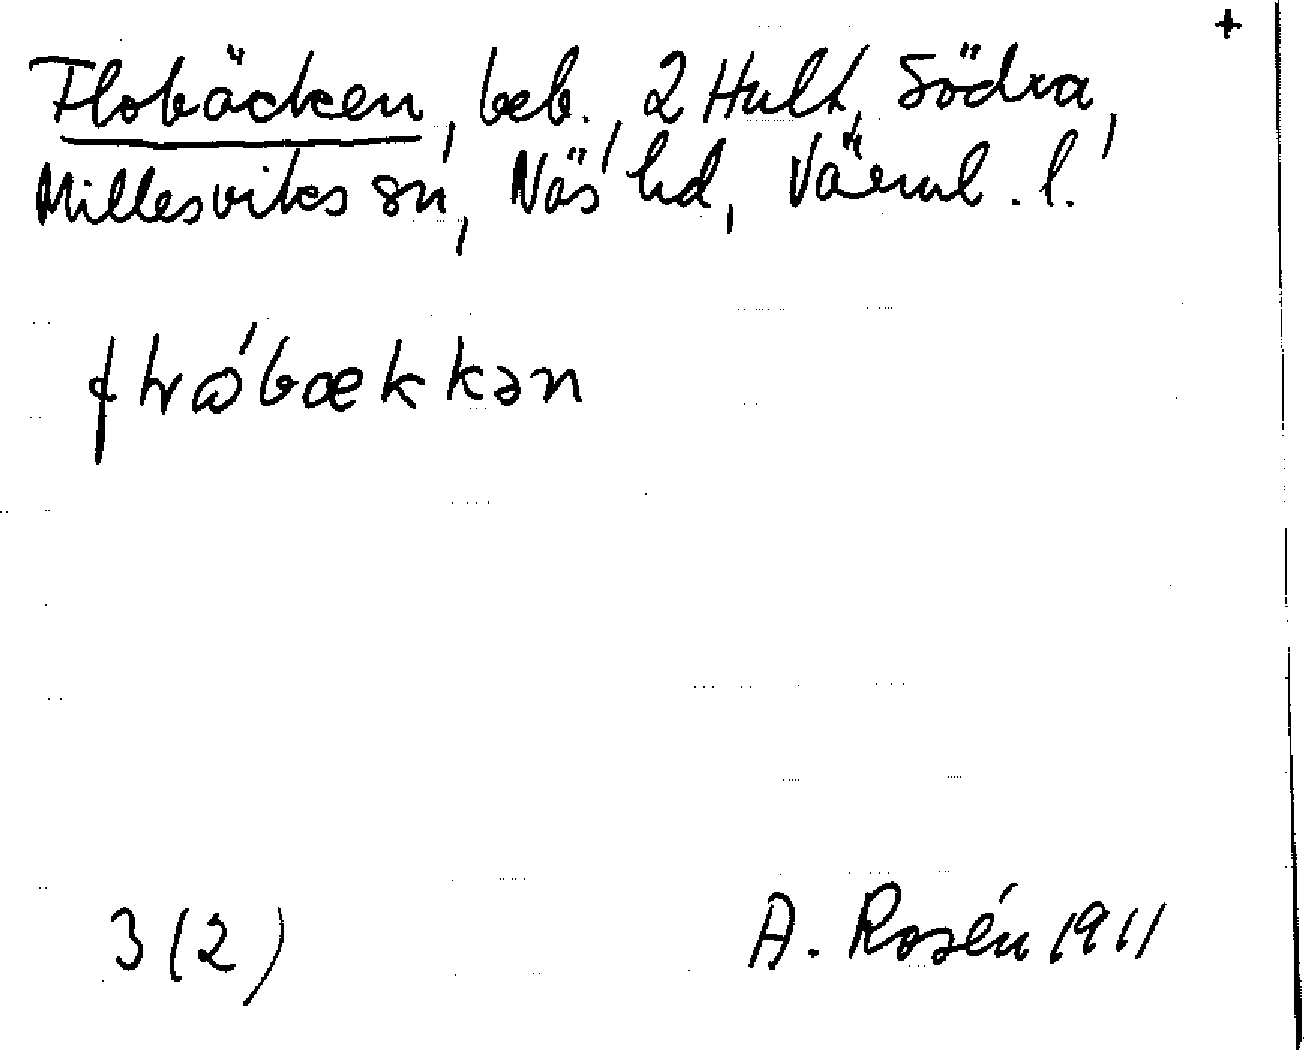 +
Flobäcken, beb., 2 Hult, Södra,
Millesviks sn, Näs hd, Värml. l.
3 (2)
A. Rosén 1911